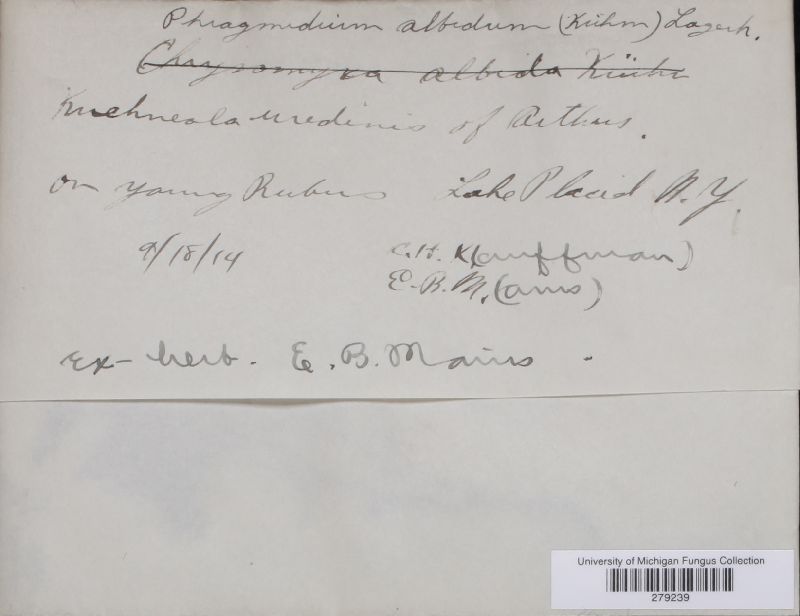 Phragmidium albidum (Kühn) Lagerh.
Chrysomyxa albida Kühn
Kuehneola uredinis of Arthur.
on young Rubus Lake Placid N.Y.
9/18/14 C.H. K(auffman)
E.B.M.(ains)
Ex-herb. E.B. Mains -
University of Michigan Fungus Collection
279239